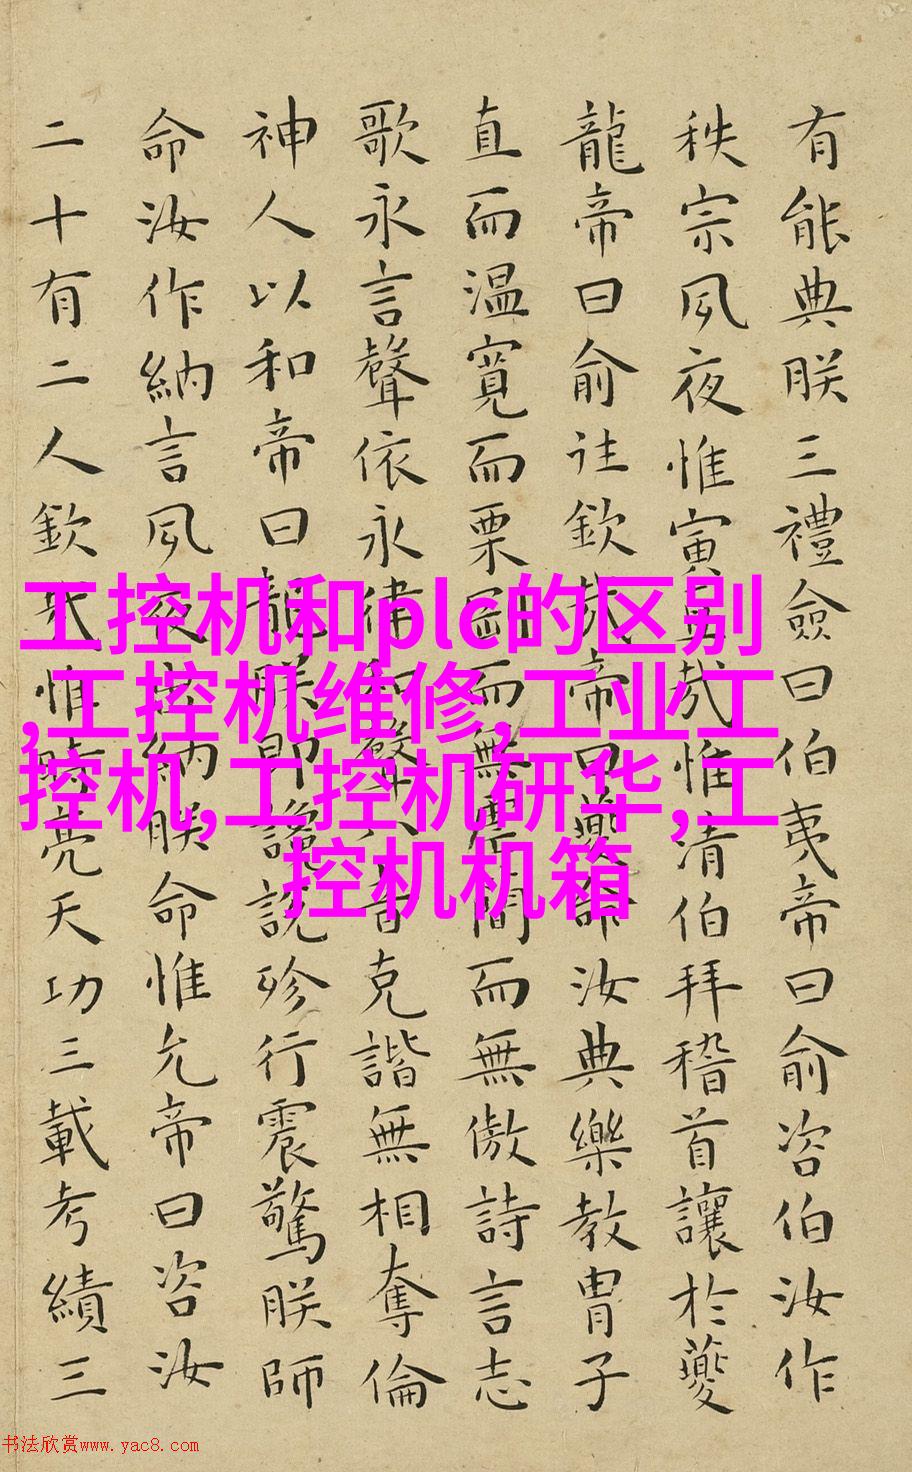 有能典朕三禮僉曰伯夷帝曰俞咨伯汝作
秩宗夙夜惟寅直哉惟清伯拜稽首讓於夔
龍帝曰俞往欽哉帝曰夔命汝典樂教胄子
直而温寬而栗剛而無虐簡而無傲詩言志
歌永言聲依永律和聲八音克諧無相奪倫
神人以和帝曰龍朕堲讒說殄行震驚朕師
命汝作納言夙夜出納朕命惟允帝曰咨汝
二十有二人欽哉惟時亮天功三載考績三
工控机和plc的区别
,工控机维修,工业工
控机,工控机研华,工
控机机箱
书法欣赏www.yac8.com